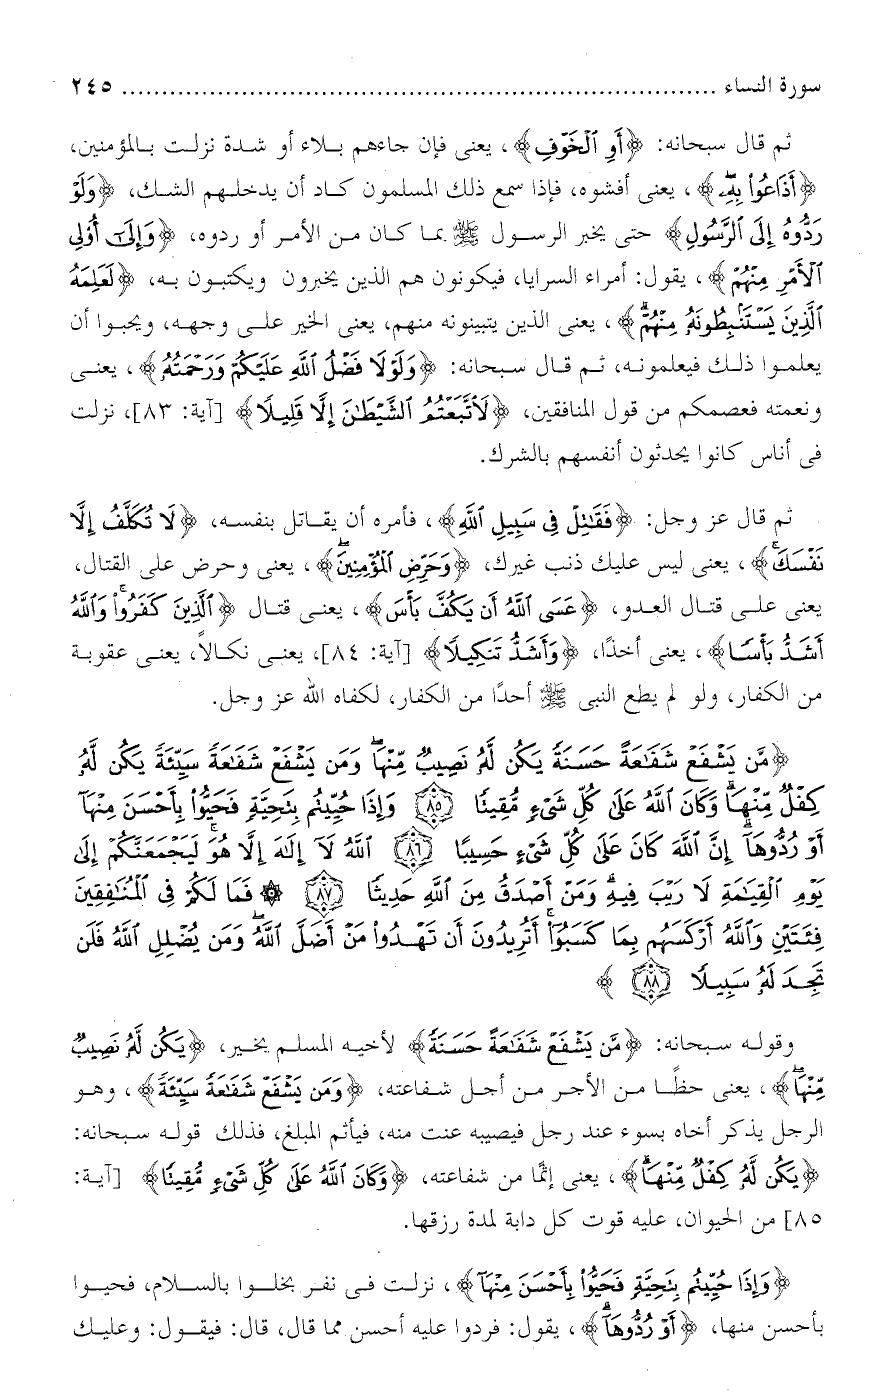 سورة النساء ................................................................ ٢٤٥
ثم قال سبحانه: ﴿أَوِ ٱلْخَوْفِ﴾، يعنى فإن جاءهم بلاء أو شدة نزلت بالمؤمنين،
﴿أَذَاعُوا۟ بِهِۦ﴾، يعنى أفشوه، فإذا سمع ذلك المسلمون كاد أن يدخلهم الشك، ﴿وَلَوْ
رَدُّوهُ إِلَى ٱلرَّسُولِ﴾ حتى يخبر الرسول ﷺ بما كان من الأمر أو ردوه، ﴿وَإِلَىٰٓ أُو۟لِى
ٱلْأَمْرِ مِنْهُمْ﴾، يقول: أمراء السرايا، فيكونون هم الذين يخبرون ويكتبون به، ﴿لَعَلِمَهُ
ٱلَّذِينَ يَسْتَنۢبِطُونَهُۥ مِنْهُمْ ۗ﴾، يعنى الذين يتبينونه منهم، يعنى الخير على وجهه، ويحبوا أن
يعلموا ذلك فيعلمونه، ثم قال سبحانه: ﴿وَلَوْلَا فَضْلُ ٱللَّهِ عَلَيْكُمْ وَرَحْمَتُهُۥ﴾، يعنى
ونعمته فعصمكم من قول المنافقين، ﴿لَٱتَّبَعْتُمُ ٱلشَّيْطَـٰنَ إِلَّا قَلِيلًا﴾ [آية: ٨٣]، نزلت
فى أناس كانوا يحدثون أنفسهم بالشرك.
ثم قال عز وجل: ﴿فَقَـٰتِلْ فِى سَبِيلِ ٱللَّهِ﴾، فأمره أن يقاتل بنفسه، ﴿لَا تُكَلَّفُ إِلَّا
نَفْسَكَ ۚ﴾، يعنى ليس عليك ذنب غيرك، ﴿وَحَرِّضِ ٱلْمُؤْمِنِينَ ۖ﴾، يعنى وحرض على القتال،
يعنى على قتال العدو، ﴿عَسَى ٱللَّهُ أَن يَكُفَّ بَأْسَ﴾، يعنى قتال ﴿ٱلَّذِينَ كَفَرُوا۟ ۚ وَٱللَّهُ
أَشَدُّ بَأْسًا﴾، يعنى أخذًا، ﴿وَأَشَدُّ تَنكِيلًا﴾ [آية: ٨٤]، يعنى نكالاً، يعنى عقوبة
من الكفار، ولو لم يطع النبى ﷺ أحدًا من الكفار، لكفاه الله عز وجل.
﴿مَّن يَشْفَعْ شَفَـٰعَةً حَسَنَةً يَكُن لَّهُۥ نَصِيبٌ مِّنْهَا ۖ وَمَن يَشْفَعْ شَفَـٰعَةً سَيِّئَةً يَكُن لَّهُۥ
كِفْلٌ مِّنْهَا ۗ وَكَانَ ٱللَّهُ عَلَىٰ كُلِّ شَىْءٍ مُّقِيتًا ﴿٨٥﴾ وَإِذَا حُيِّيتُم بِتَحِيَّةٍ فَحَيُّوا۟ بِأَحْسَنَ مِنْهَآ
أَوْ رُدُّوهَآ ۗ إِنَّ ٱللَّهَ كَانَ عَلَىٰ كُلِّ شَىْءٍ حَسِيبًا ﴿٨٦﴾ ٱللَّهُ لَآ إِلَـٰهَ إِلَّا هُوَ ۚ لَيَجْمَعَنَّكُمْ إِلَىٰ
يَوْمِ ٱلْقِيَـٰمَةِ لَا رَيْبَ فِيهِ ۗ وَمَنْ أَصْدَقُ مِنَ ٱللَّهِ حَدِيثًا ﴿٨٧﴾ ۞ فَمَا لَكُمْ فِى ٱلْمُنَـٰفِقِينَ
فِئَتَيْنِ وَٱللَّهُ أَرْكَسَهُم بِمَا كَسَبُوٓا۟ ۚ أَتُرِيدُونَ أَن تَهْدُوا۟ مَنْ أَضَلَّ ٱللَّهُ ۖ وَمَن يُضْلِلِ ٱللَّهُ فَلَن
تَجِدَ لَهُۥ سَبِيلًا ﴿٨٨﴾ ﴾
وقوله سبحانه: ﴿مَّن يَشْفَعْ شَفَـٰعَةً حَسَنَةً﴾ لأخيه المسلم بخير، ﴿يَكُن لَّهُۥ نَصِيبٌ
مِّنْهَا ۖ﴾، يعنى حظًا من الأجر من أجل شفاعته، ﴿وَمَن يَشْفَعْ شَفَـٰعَةً سَيِّئَةً﴾، وهو
الرجل يذكر أخاه بسوء عند رجل فيصيبه عنت منه، فيأثم المبلغ، فذلك قوله سبحانه:
﴿يَكُن لَّهُۥ كِفْلٌ مِّنْهَا ۗ﴾، يعنى إثمًا من شفاعته، ﴿وَكَانَ ٱللَّهُ عَلَىٰ كُلِّ شَىْءٍ مُّقِيتًا﴾ [آية:
٨٥] من الحيوان، عليه قوت كل دابة لمدة رزقها.
﴿وَإِذَا حُيِّيتُم بِتَحِيَّةٍ فَحَيُّوا۟ بِأَحْسَنَ مِنْهَآ﴾، نزلت فى نفر بخلوا بالسلام، فحيوا
بأحسن منها، ﴿أَوْ رُدُّوهَآ ۗ﴾، يقول: فردوا عليه أحسن مما قال، قال: فيقول: وعليك